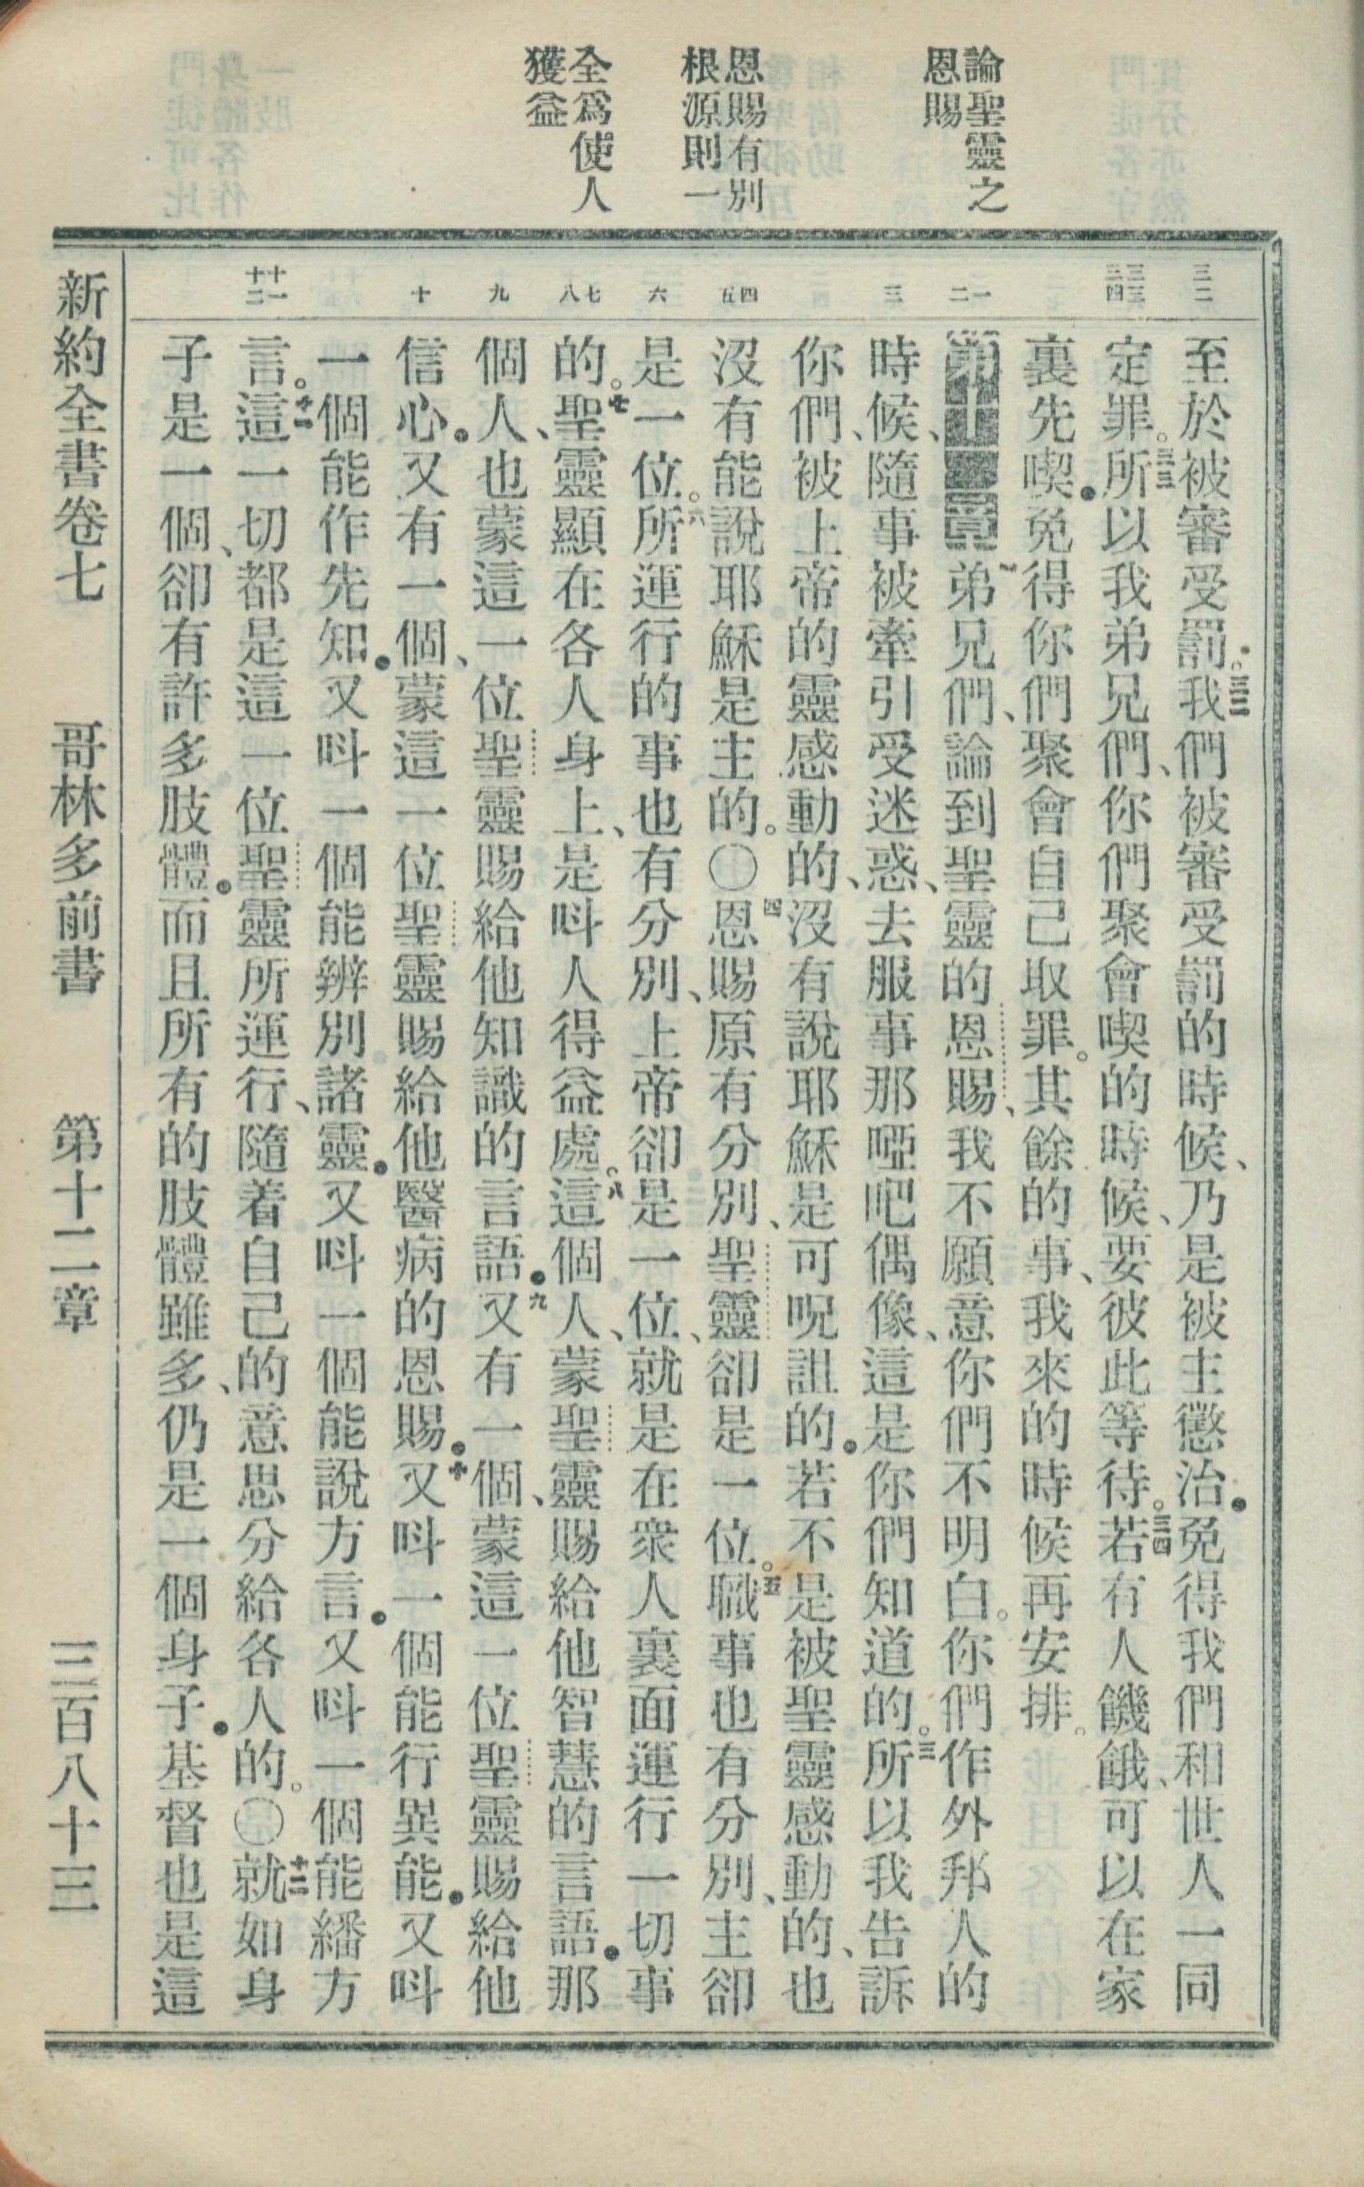 論聖靈之
恩賜
恩賜有別
根源則一
全爲使人
獲益
三二
三三
三四
一
二
三
四
五
六
七
八
九
十
十一
十二
至於被審受罰。三二我們被審受罰的時候、乃是被主懲治.免得我們和世人一同
定罪。三三所以我弟兄們、你們聚會喫的時候、要彼此等待。三四若有人饑餓、可以在家
裏先喫.免得你們聚會自己取罪。其餘的事、我來的時候再安排。
第十二章 弟兄們、論到聖靈的恩賜、我不願意你們不明白。你們作外邦人的
時候、隨事被牽引受迷惑、去服事那啞吧偶像、這是你們知道的。三所以我告訴
你們、被上帝的靈感動的、沒有說耶穌是可呪詛的.若不是被聖靈感動的、也
沒有能說耶穌是主的。〇四恩賜原有分別、聖靈卻是一位。五職事也有分別、主卻
是一位。六所運行的事也有分別、上帝卻是一位、就是在衆人裏面運行一切事
的。七聖靈顯在各人身上、是呌人得益處。八這個人、蒙聖靈賜給他智慧的言語.那
個人、也蒙這一位聖靈賜給他知識的言語.九又有一個、蒙這一位聖靈賜給他
信心.又有一個、蒙這一位聖靈賜給他醫病的恩賜.十又呌一個能行異能.又呌
一個能作先知.又呌一個能辨別諸靈.又呌一個能說方言.又呌一個能繙方
言。十一這一切都是這一位聖靈所運行、隨着自己的意思分給各人的。〇十二就如身
子是一個、卻有許多肢體.而且所有的肢體雖多、仍是一個身子.基督也是這
新約全書卷七 哥林多前書 第十二章 三百八十三